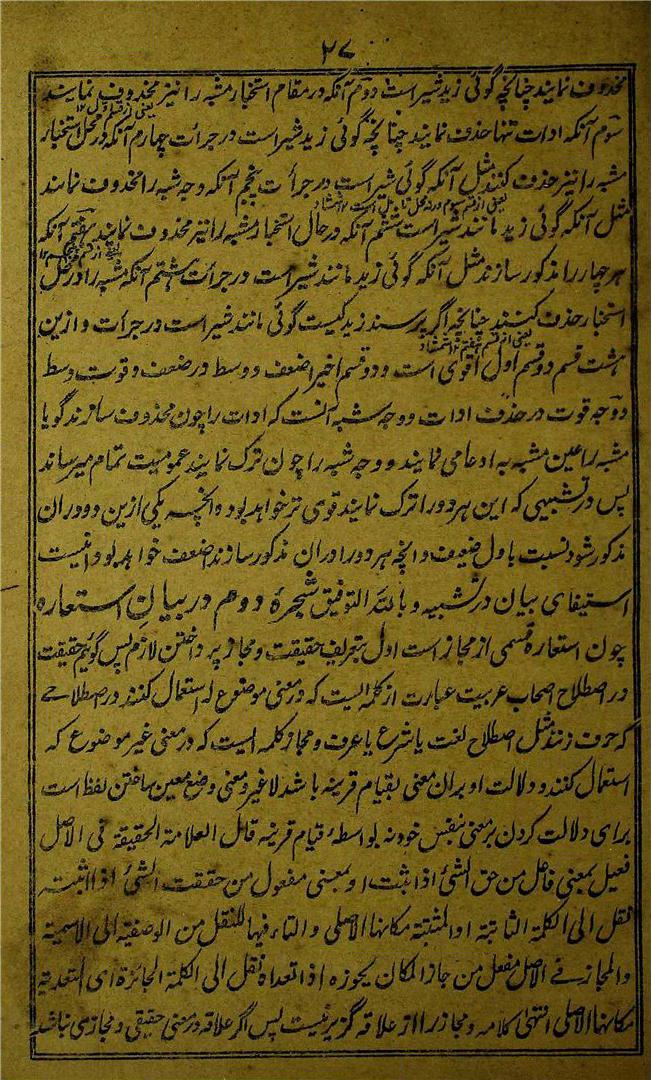 ۲۷
محذوف نمایند چنانچه گوئی زید شیر است دوم آنکه در مقام استخبار مشبه را نیز محذوف نمایند
سوم آنکه ادات تنها حذف نمایند چنانچه گوئی زید شیر است در جرات چهارم آنکه در محل استخبار
مشبه را نیز حذف کنند مثل آنکه گوئی شیر است در جرات پنجم آنکه وجه شبه را محذوف نمایند
مثل آنکه گوئی زید مانند شیر است ششم آنکه در حال استخبار مشبه را نیز محذوف نمایند هفتم آنکه
هر چهار را مذکور سازند مثل آنکه گوئی زید مانند شیر است در جرات هشتم آنکه مشبه را در محل
استخبار حذف کنند چنانچه اگر پرسند زید کیست گوئی مانند شیر است در جرات و ازین
هشت قسم دو قسم اول اقوی است و دو قسم اخیر اضعف و وسط در ضعف و قوت وسط
دو وجه قوت در حذف ادات و وجه شبه آنست که ادات را چون محذوف سازند گویا
مشبه را عین مشبه به ادعا می نمایند و وجه شبه را چون ترک نمایند عمومیت تمام میرساند
پس در تشبیهی که این هر دو را ترک نمایند قوی تر خواهد بود و انچه یکی ازین دو دران
مذکور شود نسبت باول ضعیف و انچه هر دو را دران مذکور سازند اضعف خواهد بود انیست
استیفای بیان در تشبیه و بالله التوفیق شجرهٔ دوم در بیان استعاره
چون استعاره قسمی از مجاز است اول بتعریف حقیقت و مجاز پرداختن لازم پس گویم حقیقت
در اصطلاح اصحاب عربیت عبارت از کلمه ایست که در معنی موضوع له استعمال کنند در اصطلاحے
که حرف زنند مثل اصطلاح لغت یا شرع یا عرف و مجاز کلمه ایست که در معنی غیر موضوع که
استعمال کنند و دلالت او بران معنی بقیام قرینه باشد لا غیر و معنی وضع معین ساختن لفظ است
برای دلالت کردن بر معنی بنفس خود نه بواسطهٔ قیام قرینه قال العلامة الحقیقة فی الاصل
فعیل بمعنی فاعل من حق الشئ اذا ثبت او بمعنی مفعول من حققت الشئ اذا اثبته
نقل الی الکلمة الثابتة او المثبتة مکانها الاصلی والتاء فیها للنقل من الوصفیة الی الاسمیة
والمجاز فے الاصل مفعل من جاز المکان یجوزه اذا تعداه نقل الی الکلمة الجائزة ای المتعدیة
مکانها الاصلی انتهی کلامه و مجاز را از علاقه گزیر نیست پس اگر علاقه در معنی حقیقی و مجازی نباشد